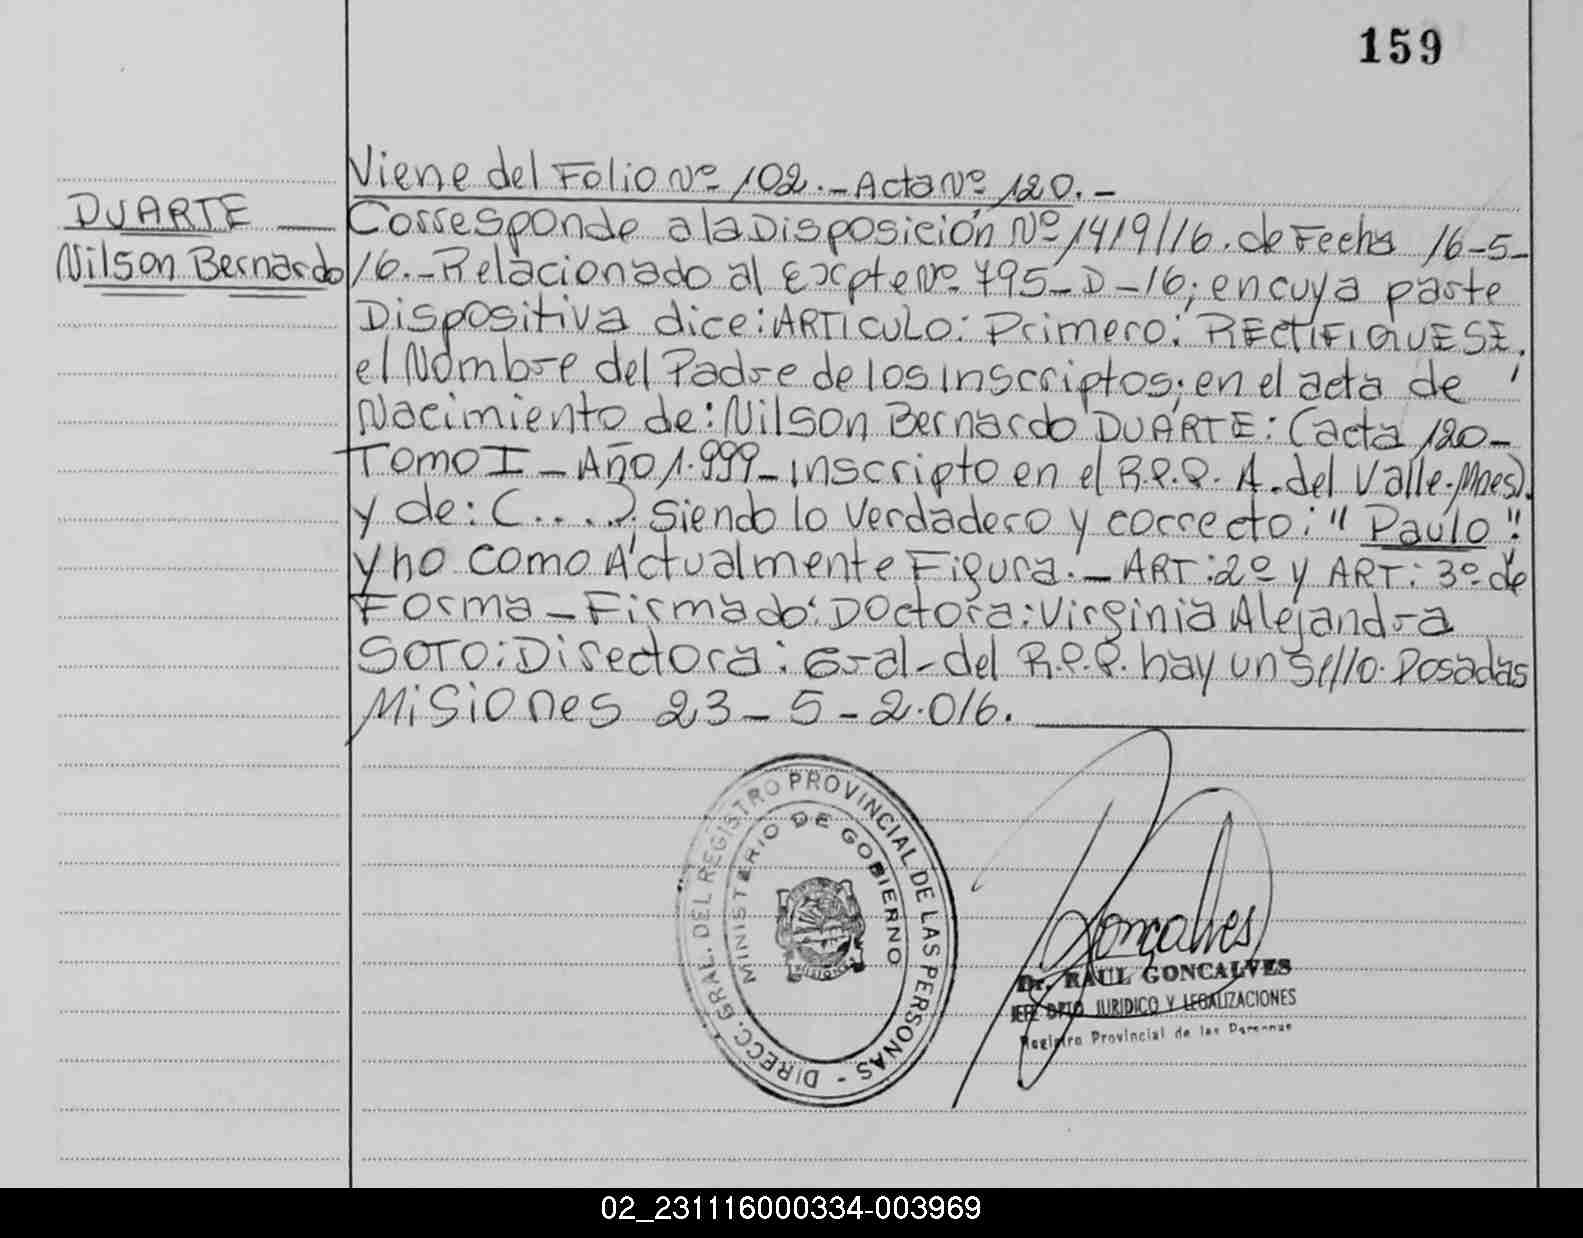 159
Viene del Folio Nº 102.- Acta Nº 120.-
DUARTE
Nilson Bernardo
Corresponde a la Disposición Nº 1419/16. de Fecha 16-5-
16.- Relacionado al Expte Nº 795-D-16; en cuya parte
Dispositiva dice: ARTICULO: Primero: RECTIFIQUESE,
el Nombre del Padre de los inscriptos; en el acta de
Nacimiento de: Nilson Bernardo DUARTE: (acta 120-
Tomo I - Año 1.999- inscripto en el R.P.P. A. del Valle. Mnes).
y de: (....). siendo lo verdadero y correcto: "Paulo".
y no como Actualmente Figura.- ART: 2º y ART: 3º de
Forma - Firmado: Doctora: Virginia Alejandra
SOTO: Directora: Gral- del R.P.P. hay un sello. Posadas
Misiones 23-5-2.016.
DIRECC. GRAL. DEL REGISTRO PROVINCIAL DE LAS PERSONAS -
MINISTERIO DE GOBIERNO
MISIONES
Gonçalves
Dr. RAUL GONCALVES
JEFE DPTO JURIDICO Y LEGALIZACIONES
Registro Provincial de las Personas
02_231116000334-003969